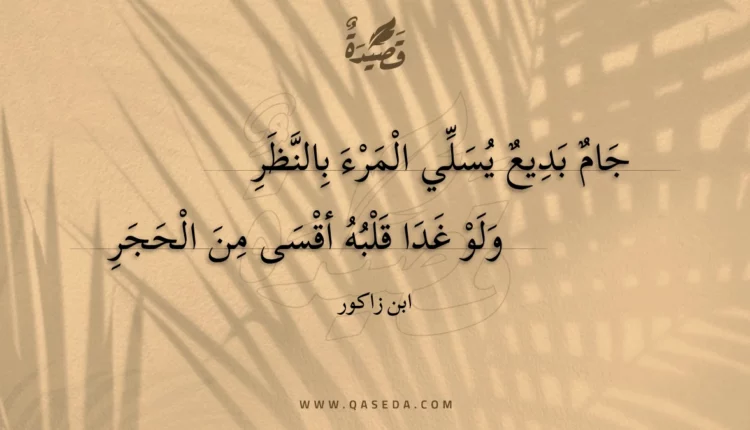 قَصِيدَةٌ
جَامٌ بَدِيعٌ يُسَلِّي الْمَرْءَ بِالنَّظَرِ
وَلَوْ غَدَا قَلْبُهُ أقْسَى مِنَ الْحَجَرِ
ابن زاكور
WWW.QASEDA.COM